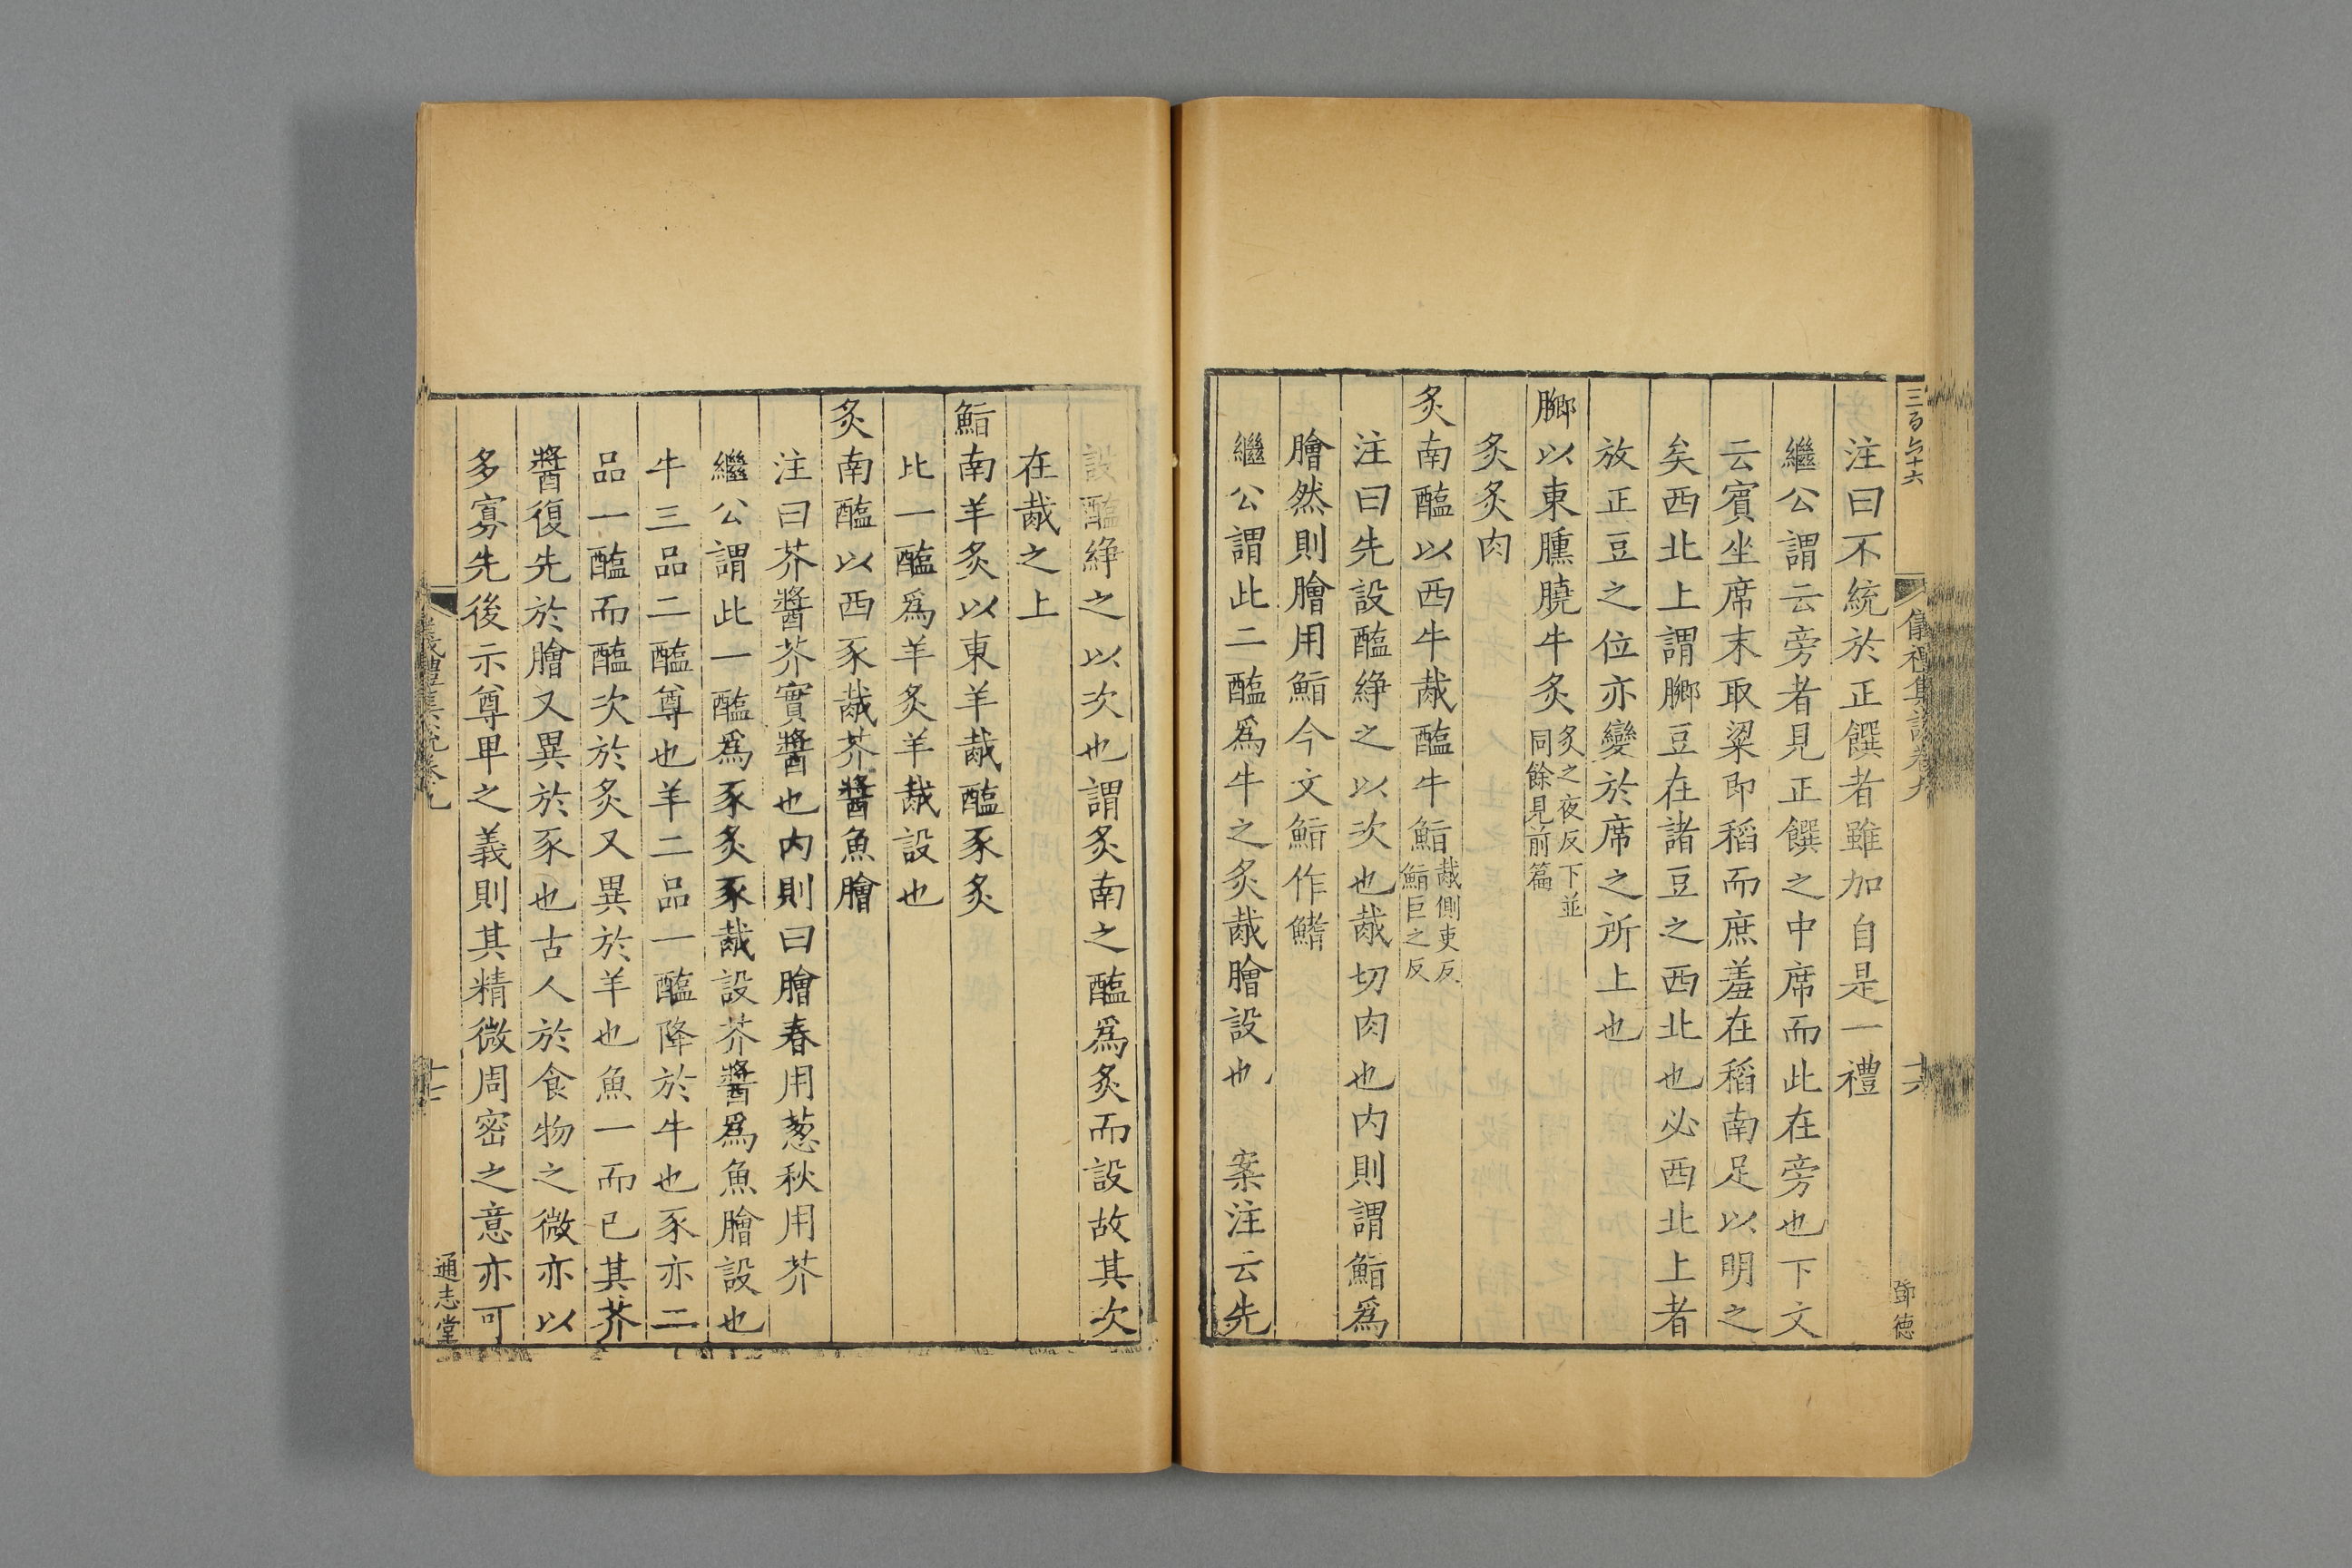 儀禮集說卷九
十六
鄧德
注曰不統於正饌者雖加自是一禮
繼公謂云旁者見正饌之中席而此在旁也下文
云賓坐席末取粱即稻而庶羞在稻南足以明之
矣西北上謂膷豆在諸豆之西北也必西北上者
放正豆之位亦變於席之所上也
膷以東臐膮牛炙炙之夜反下並同餘見前篇
炙炙肉
炙南醢以西牛胾醢牛鮨胾側吏反鮨巨之反
注曰先設醢綪之以次也胾切肉也内則謂鮨爲
膾然則膾用鮨今文鮨作鰭
繼公謂此二醢爲牛之炙胾膾設也　案注云先
設醢綪之以次也謂炙南之醢爲炙而設故其次
在胾之上
鮨南羊炙以東羊胾醢豕炙
比一醢爲羊炙羊胾設也
炙南醢以西豕胾芥醬魚膾
注曰芥醬芥實醬也内則曰膾春用葱秋用芥
繼公謂此一醢爲豕炙豕胾設芥醬爲魚膾設也
牛三品二醢尊也羊二品一醢降於牛也豕亦二
品一醢而醢次於炙又異於羊也魚一而已其芥
醬復先於膾又異於豕也古人於食物之微亦以
多寡先後示尊卑之義則其精微周密之意亦可
儀禮集說卷九
十七
通志堂